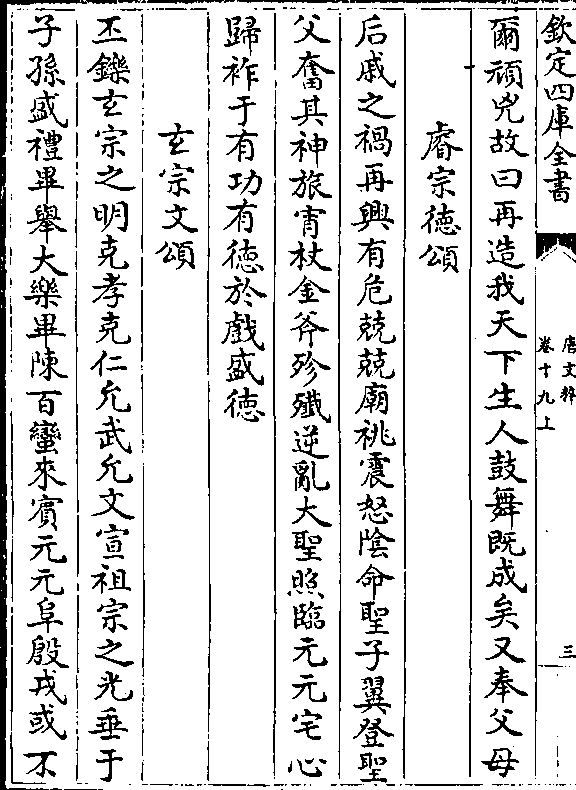 欽定四庫全書
唐文粹
卷十九上
三
爾頑兇故曰再造我天下生人鼓舞既成矣又奉父母
睿宗徳頌
后戚之禍再興有危兢兢廟祧震怒陰命聖子翼登聖
父奮其神旅宵杖金斧殄殲逆亂大聖照臨元元宅心
歸祚于有功有徳於戲盛徳
玄宗文頌
丕鑠玄宗之明克孝克仁允武允文宣祖宗之光垂于
子孫盛禮畢舉大樂畢陳百蠻來賓元元阜殷戎或不